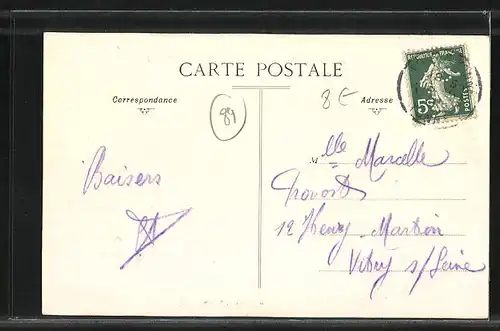 CARTE POSTALE
Correspondance
Adresse
8 €
89
REPUBLIQUE FRANÇAISE
5c
POSTES
Baisers
Mlle Marcelle
Provost
12 Henry Martin
Vitry s/ Seine